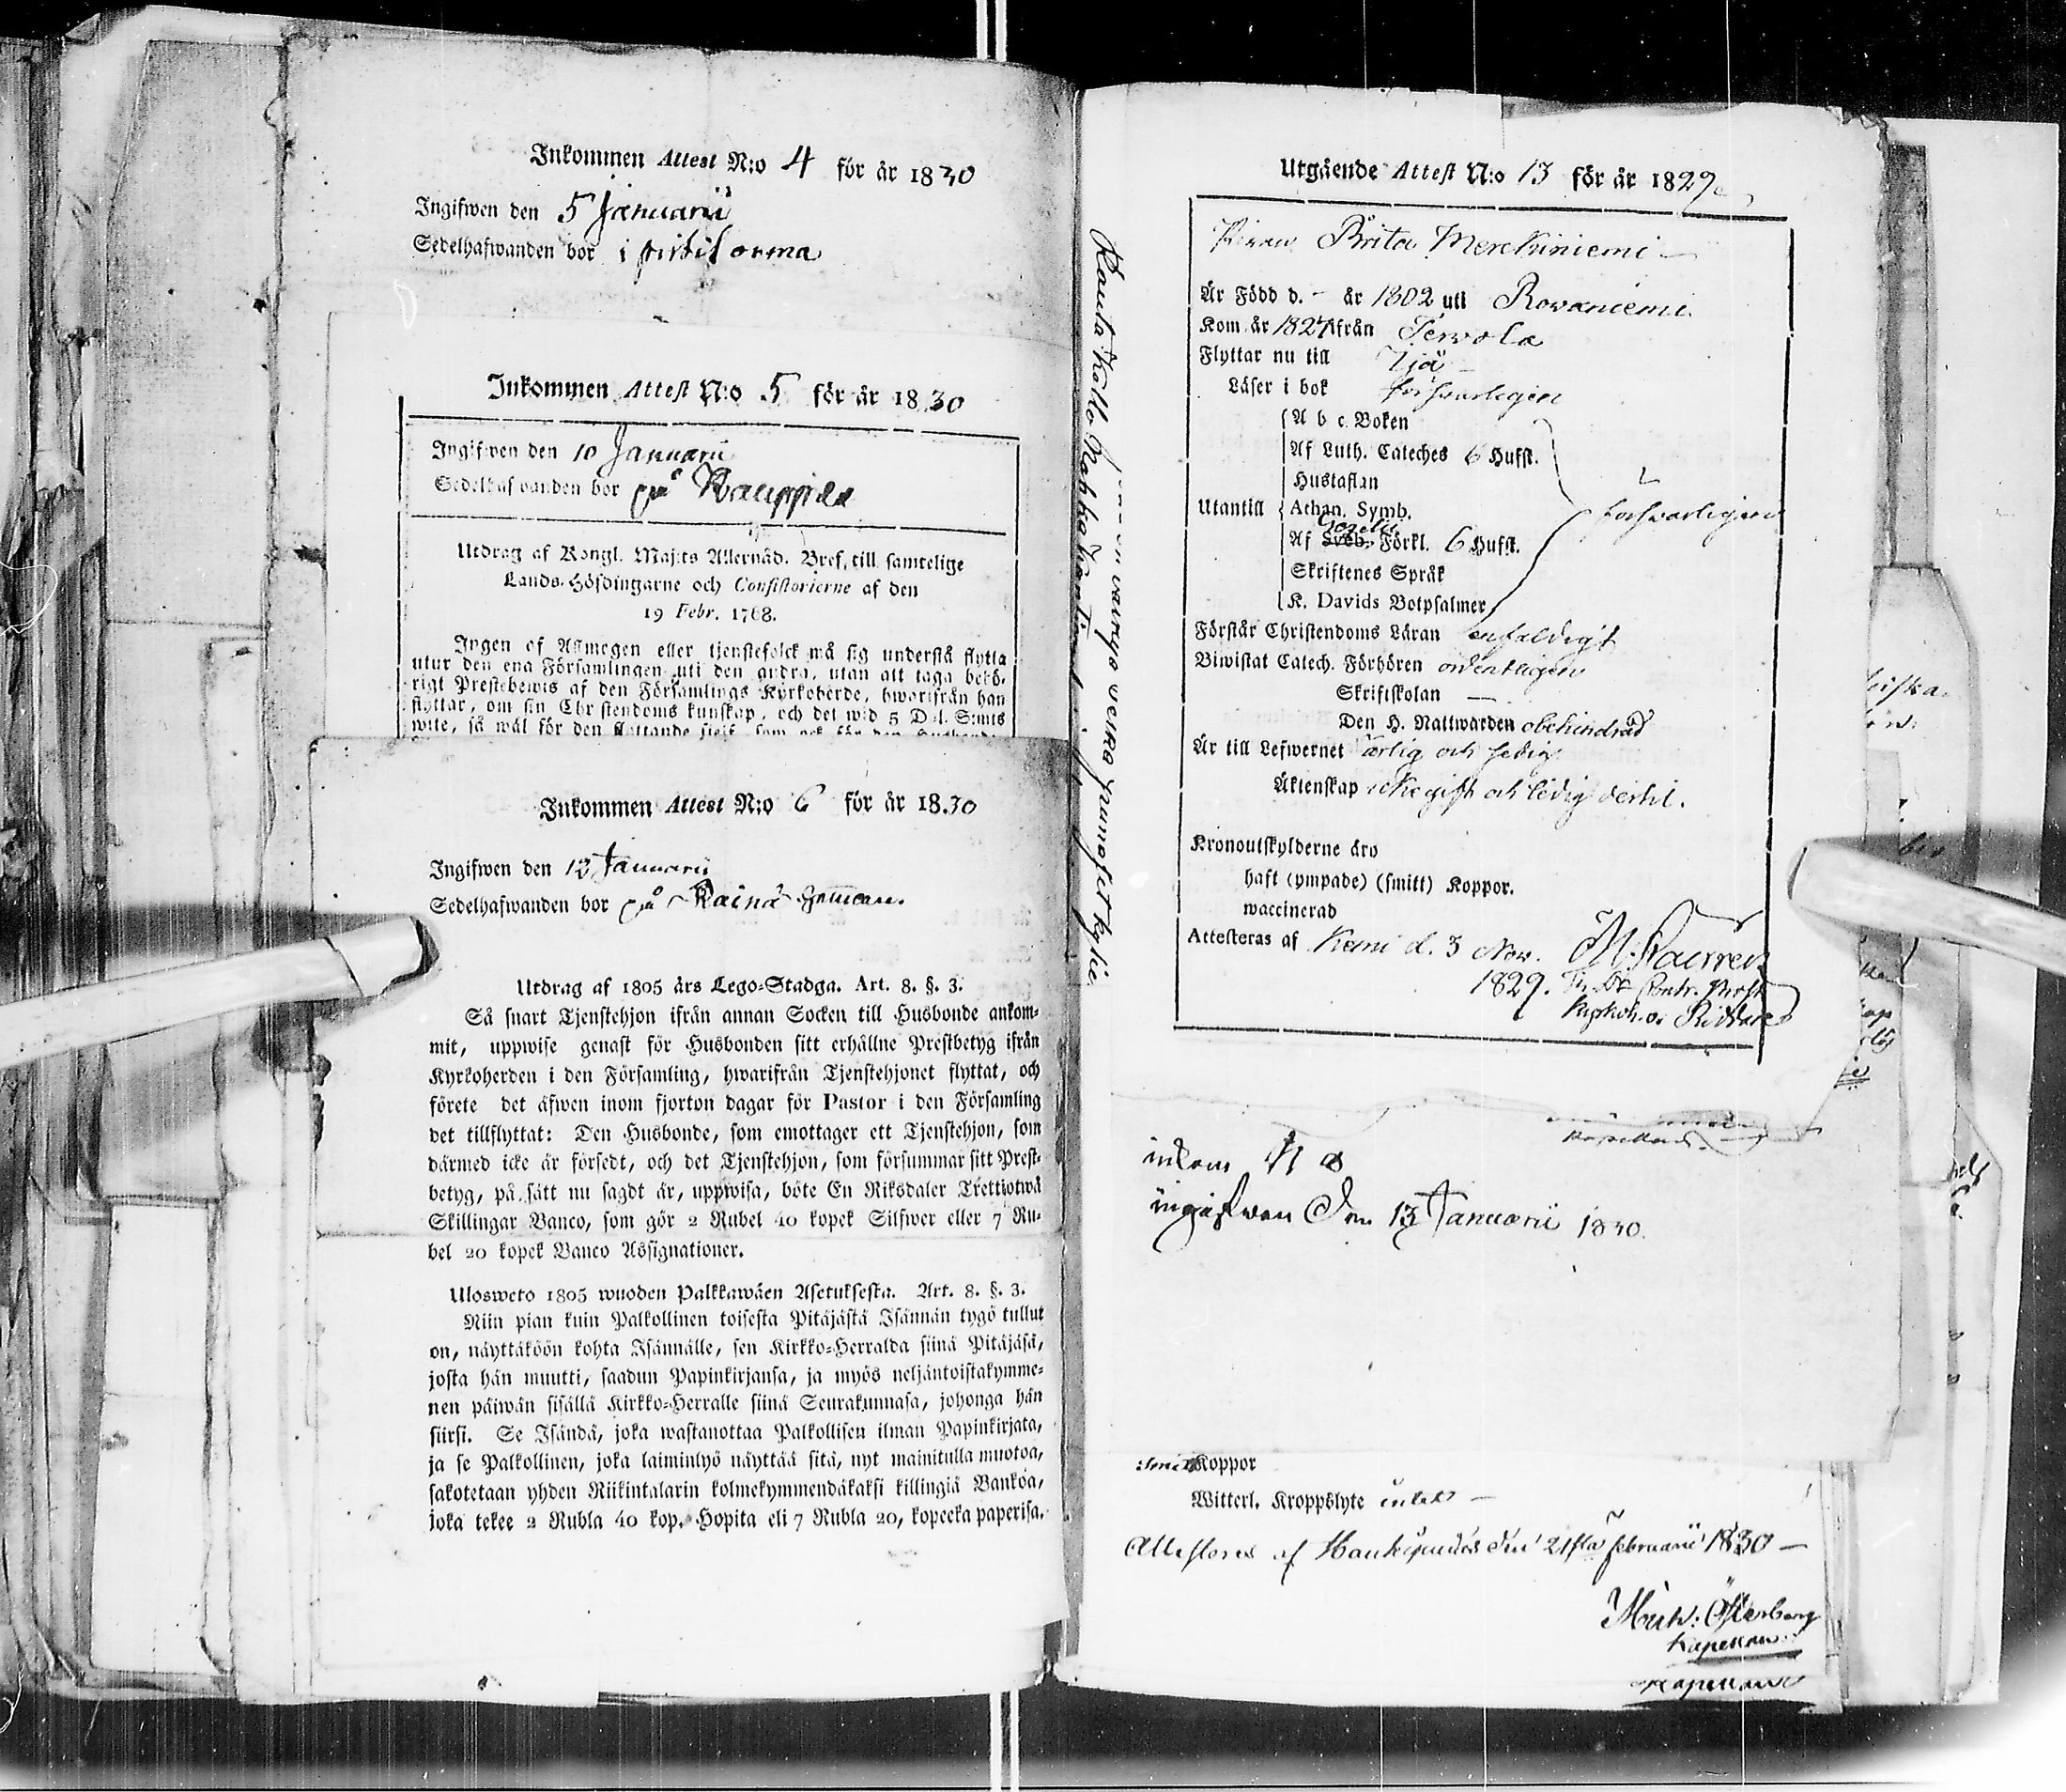 Inkommen Attest N:o 4 för år 1830
Ingifwen den 5 Januarii
Sedelhafwanden bor i
Inkommen Attest N:o 5 för år 1830
Ingifwen den 10 Januarii
Sedelhafwanden bor på Kauppila
Utdrag af Kongl. Maj:ts Allernåd. Bref, till samtelige
Lands-Höfdingarne och Consistorierne af den
19 Febr. 1768.
Ingen af Allmogen eller tjenstefolck må sig understå flytta
utur den ena Församlingen uti den andra, utan att taga behö-
rigt Prestebewis af den Församlings Kyrkoherde, hwarifrån han
flyttar, om sin Christendoms kunskap, och det wid 5 Dal. Smts
wite, så wäl för den flyttande sjelf, som ock för den
Inkommen Attest N:o 6 för år 1830
Ingifwen den 12 Januarii
Sedelhafwanden bor på Rainå
Utdrag af 1805 års Lego-Stadga. Art. 8. §. 3.
Så snart Tjenstehjon ifrån annan Socken till Husbonde ankom-
mit, uppwise genast för Husbonden sitt erhållne Prestbetyg ifrån
Kyrkoherden i den Församling, hwarifrån Tjenstehjonet flyttat, och
förete det äfwen inom fjorton dagar för Pastor i den Församling
det tillflyttat: Den Husbonde, som emottager ett Tjenstehjon, som
därmed icke är försedt, och det Tjenstehjon, som försummar sitt Prest-
betyg, på sätt nu sagdt är, uppwisa, böte En Riksdaler Trettiotwå
Skillingar Banco, som gör 2 Rubel 40 kopek Silfwer eller 7 Ru-
bel 20 kopek Banco Assignationer.
Ulosweto 1805 wuoden Palkkawäen Asetuksesta. Art. 8. §. 3.
Niin pian kuin Palkollinen toisesta Pitäjästä Isännän tygö tullut
on, näyttäköön kohta Isännälle, sen Kirkko-Herralda siinä Pitäjäsä,
josta hän muutti, saadun Papinkirjansa, ja myös neljäntoistakymme-
nen päiwän sisällä Kirkko-Herralle siinä Seurakunnasa, johonga hän
siirsi. Se Isändä, joka wastanottaa Palkollisen ilman Papinkirjata,
ja se Palkollinen, joka laiminlyö näyttää sitä, nyt mainitulla muotoa,
sakotetaan yhden Riikintalarin kolmekymmendäkaksi killingiä Bankoa,
joka tekee 2 Rubla 40 kop. Hopita eli 7 Rubla 20, kopecka paperisa.
Utgående Attest N:o 13 för år 1829
Pigan Brita Merkiniemi
Är Född d. – år 1802 uti Rovaniemi
Kom år 1827 ifrån Tervola
Flyttar nu till Ijå
Läser i bok försvarligen
Utantill
A b c Boken
Af Luth. Cateches 6 Hufst.
Hustaflan
Athan. Symb.
Gezelii
Af Sveb. Förkl. 6 Hufst.
Skriftenes Språk
K. Davids Botpsalmer
försvarligen
Förstår Christendoms Läran enfaldigt
Biwistat Catech. Förhören ordentligen
Skriftskolan —
Den H. Nattwarden obehindrad
Är till Lefwernet ärlig och sedig
Äktenskap icke gift och ledig dertil.
Kronoutskylderne äro
haft (ympade) (smitt) Koppor.
waccinerad
Attesteras af Kemi d. 3 Nov.
1829.
Kyrkoh. o. Riddare
inkom N 8
ingifwen den 13 Januarii 1830.
Koppor
Witterl. Kroppslyte intet —
Attesteras af Haukipudas den 21sta februarii 1830 —
Österberg
Kapellan
Kapellan